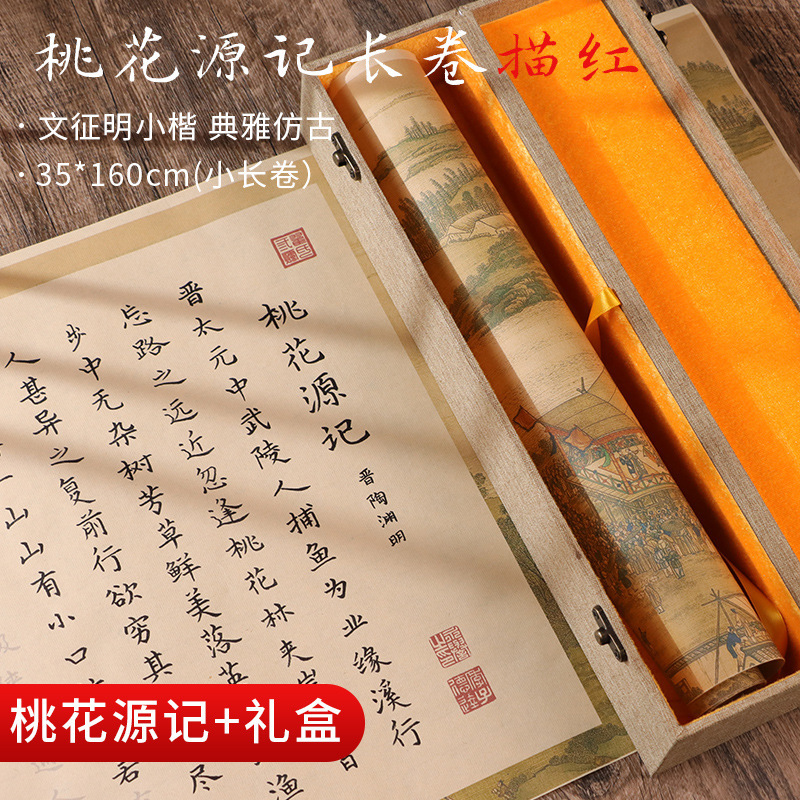 桃花源记长卷描红
· 文征明小楷 典雅仿古
· 35*160cm(小长卷)
桃花源记
晋陶渊明
晋太元中武陵人捕鱼为业缘溪行
忘路之远近忽逢桃花林夹岸
步中无杂树芳草鲜美落英
渔
人甚异之复前行欲穷其
尽
山山有小口
若
桃花源记+礼盒